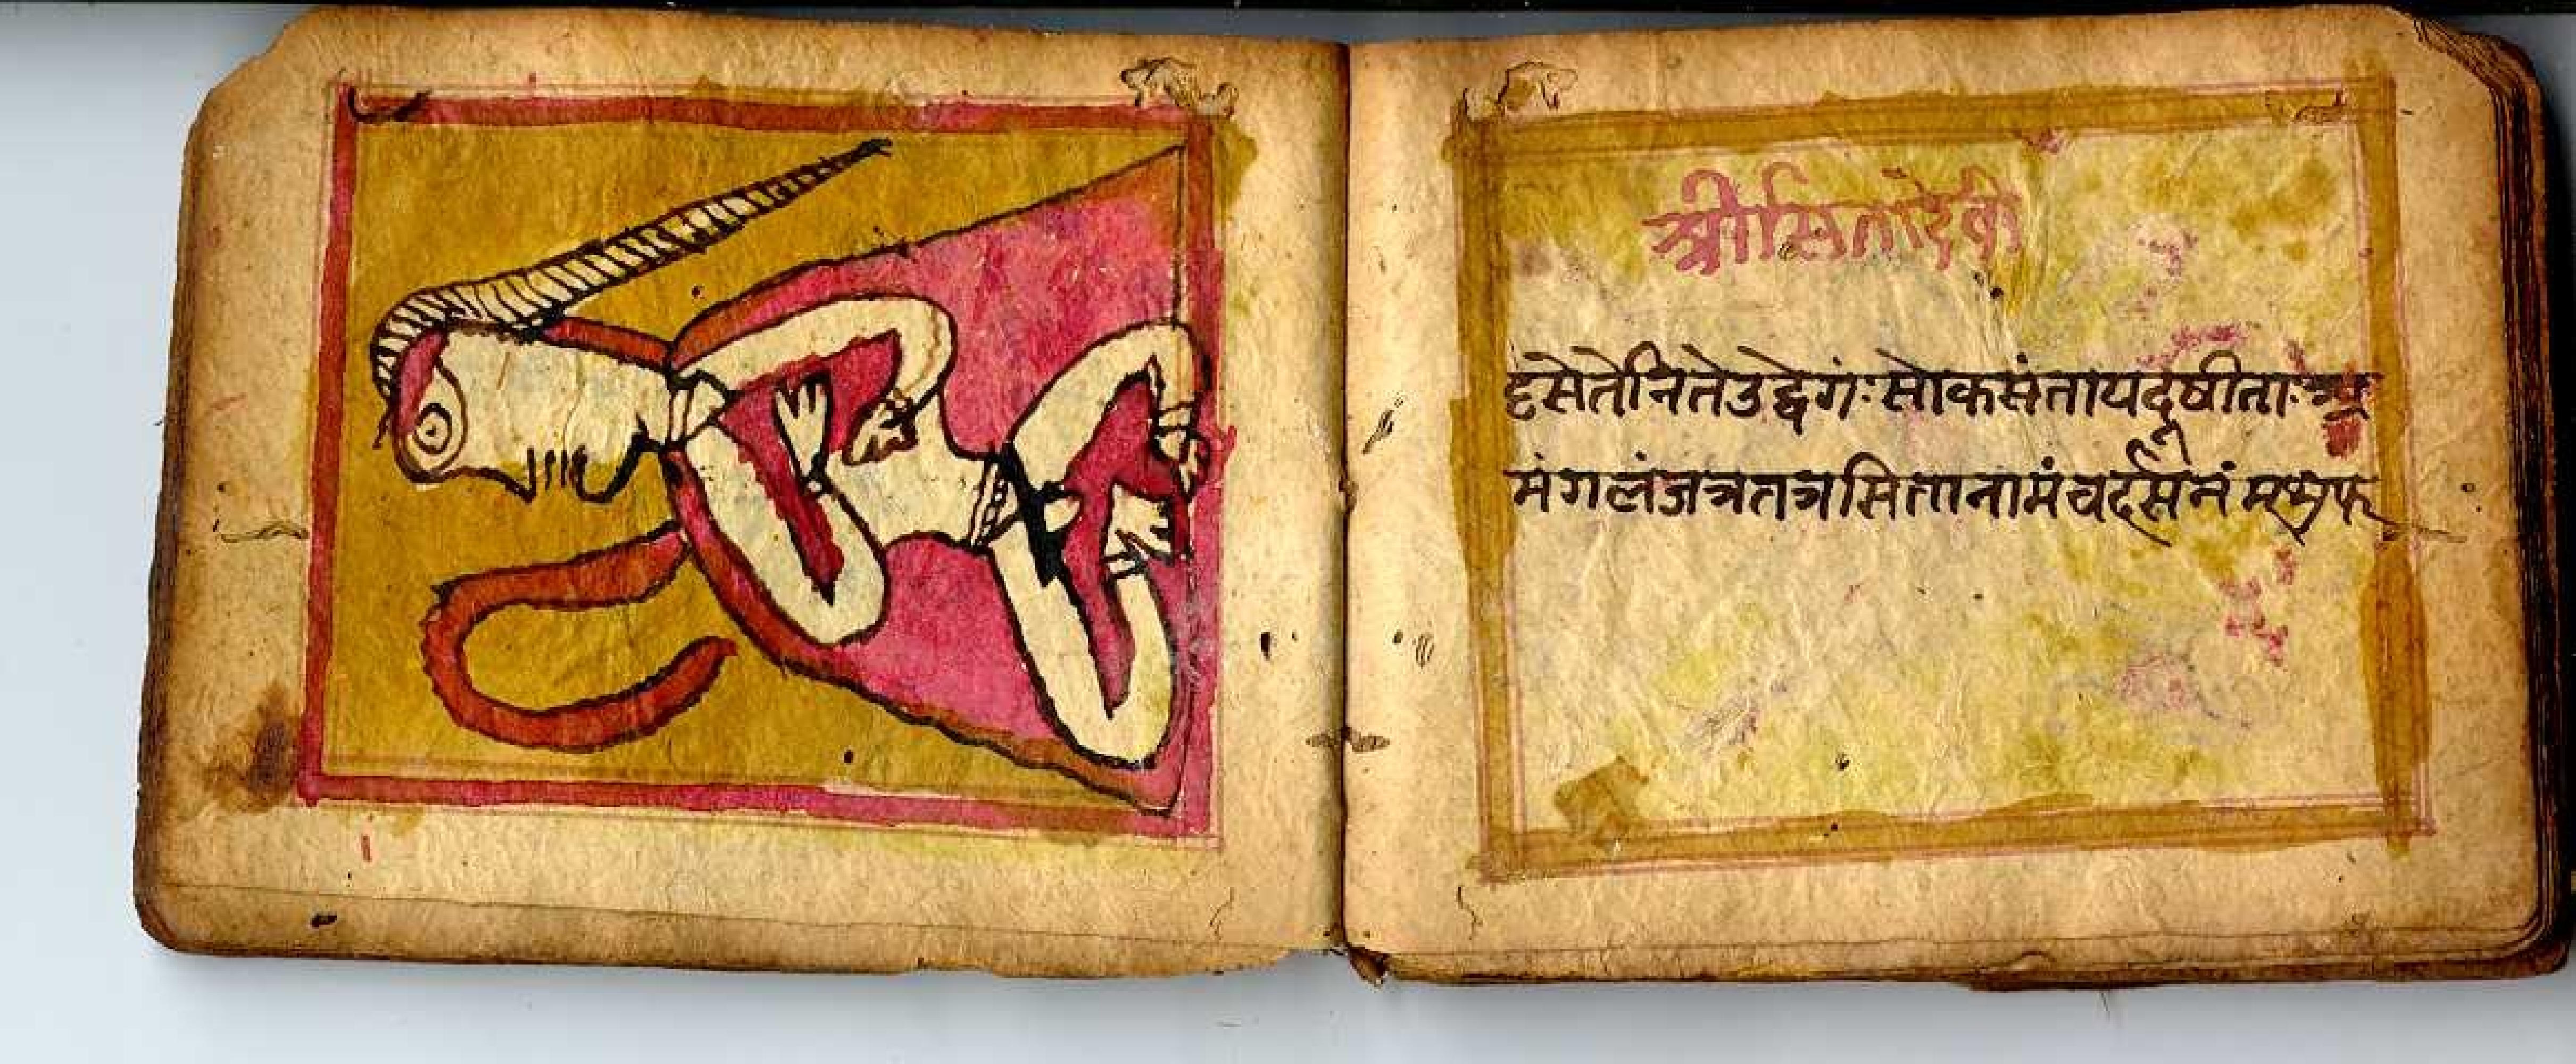 श्रीसितादेवी
दृसेतेनितेउद्वेगंःसोकसंतायदुषीताः
मंगलंजत्रतत्रसितानामंचदर्सनं